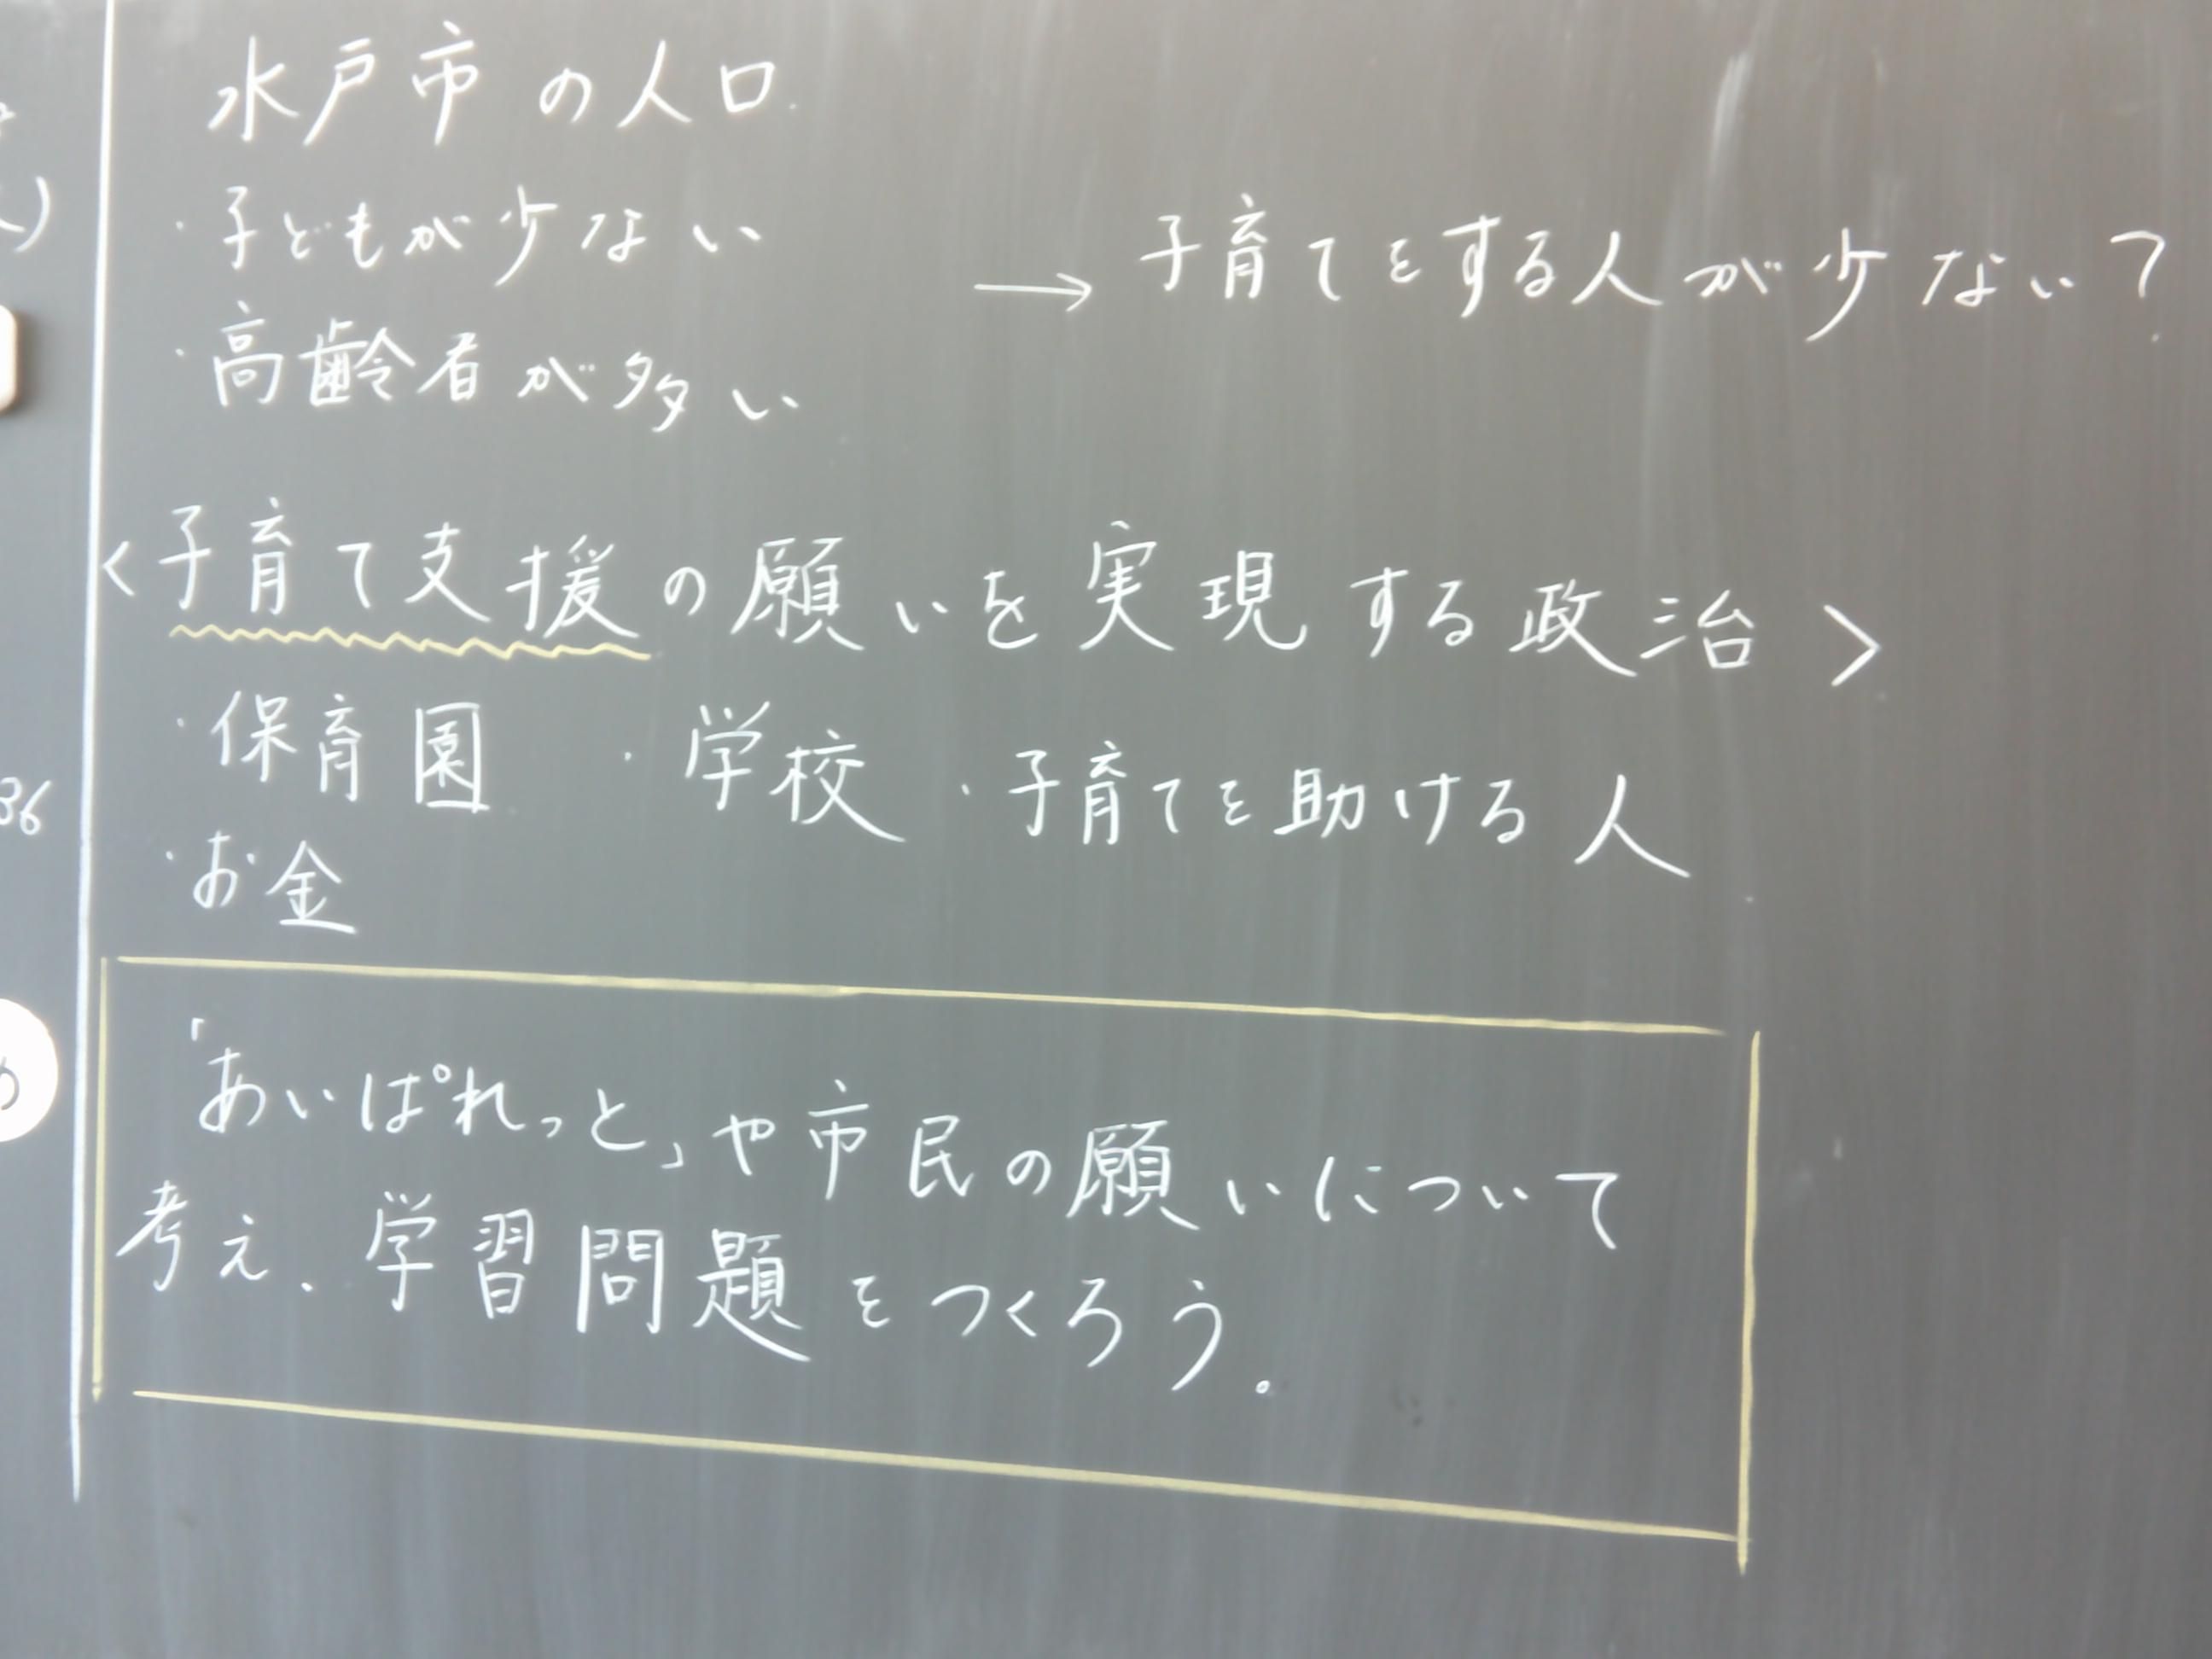 水戸市の人口
・子どもが少ない
→ 子育てをする人が少ない?
・高齢者が多い
<子育て支援の願いを実現する政治>
・保育園 ・学校 ・子育てを助ける人
・お金
「あいぱれっと」や市民の願いについて
考え、学習問題をつくろう。
36